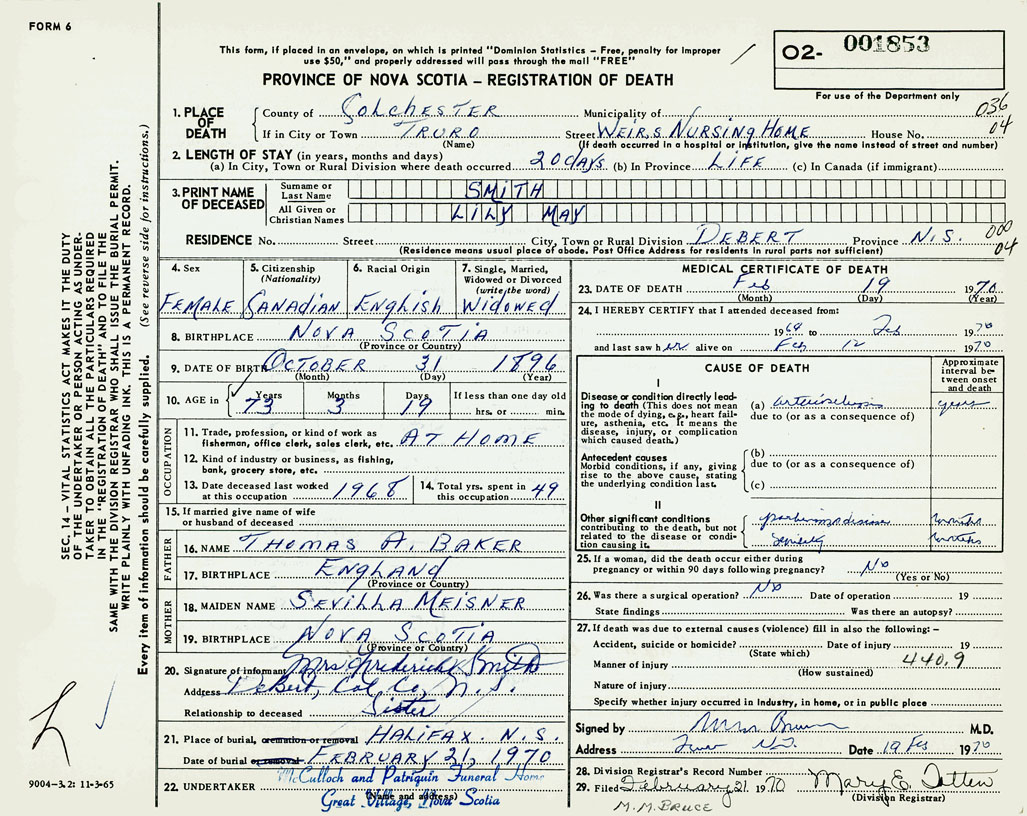 FORM 6
This form, if placed in an envelope, on which is printed "Dominion Statistics – Free, penalty for improper
use $50," and properly addressed will pass through the mail "FREE"
PROVINCE OF NOVA SCOTIA – REGISTRATION OF DEATH
O2- 001853
For use of the Department only
036
04
1. PLACE OF DEATH
County of COLCHESTER Municipality of
If in City or Town TRURO Street WEIR,S NURSING HOME House No.
(Name) (If death occurred in a hospital or institution, give the name instead of street and number)
2. LENGTH OF STAY (in years, months and days)
(a) In City, Town or Rural Division where death occurred 20 DAYS (b) In Province LIFE (c) In Canada (if immigrant)
3. PRINT NAME OF DECEASED
Surname or Last Name SMITH
All Given or Christian Names LILY MAY
RESIDENCE No. Street City, Town or Rural Division DEBERT Province N.S.
000
04
(Residence means usual place of abode. Post Office Address for residents in rural parts not sufficient)
4. Sex
FEMALE
5. Citizenship (Nationality)
CANADIAN
6. Racial Origin
ENGLISH
7. Single, Married, Widowed or Divorced (write the word)
WIDOWED
8. BIRTHPLACE NOVA SCOTIA
(Province or Country)
9. DATE OF BIRTH OCTOBER 31 1896
(Month) (Day) (Year)
10. AGE in Years Months Days If less than one day old
73 3 19 hrs. or min.
OCCUPATION
11. Trade, profession, or kind of work as
fisherman, office clerk, sales clerk, etc. AT HOME
12. Kind of industry or business, as fishing,
bank, grocery store, etc.
13. Date deceased last worked at this occupation 1968
14. Total yrs. spent in this occupation 49
15. If married give name of wife
or husband of deceased
FATHER
16. NAME THOMAS A. BAKER
17. BIRTHPLACE ENGLAND
(Province or Country)
MOTHER
18. MAIDEN NAME SEVILLA MEISNER
19. BIRTHPLACE NOVA SCOTIA
(Province or Country)
20. Signature of informant Mrs Frederick Smith
Address DeBert, Col. Co, N.S.
Relationship to deceased Sister
21. Place of burial, cremation or removal HALIFAX. N.S.
Date of burial or removal FEBRUARY 21, 1970
22. UNDERTAKER McCulloch and Patriquin Funeral Home
(Name and address)
Great Village, Nova Scotia
MEDICAL CERTIFICATE OF DEATH
23. DATE OF DEATH Feb 19 1970
(Month) (Day) (Year)
24. I HEREBY CERTIFY that I attended deceased from:
1969 to Feb 1970
and last saw her alive on Feb 12 1970
CAUSE OF DEATH
Approximate interval between onset and death
I
Disease or condition directly leading to death (This does not mean the mode of dying, e.g., heart failure, asthenia, etc. It means the disease, injury, or complication which caused death.)
(a) arteriosclerosis years
due to (or as a consequence of)
Antecedent causes
Morbid conditions, if any, giving rise to the above cause, stating the underlying condition last.
(b)
due to (or as a consequence of)
(c)
II
Other significant conditions contributing to the death, but not related to the disease or condition causing it.
senility
25. If a woman, did the death occur either during
pregnancy or within 90 days following pregnancy? No
(Yes or No)
26. Was there a surgical operation? No Date of operation 19
State findings Was there an autopsy?
27. If death was due to external causes (violence) fill in also the following: –
Accident, suicide or homicide? Date of injury 19
(State which)
Manner of injury 440.9
(How sustained)
Nature of injury
Specify whether injury occurred in industry, in home, or in public place
Signed by M.D.
Address Date 19 Feb 1970
28. Division Registrar's Record Number
29. Filed February 21 1970 Mary E. Totten
(Division Registrar)
M.M. BRUCE
SEC. 14 – VITAL STATISTICS ACT MAKES IT THE DUTY
OF THE UNDERTAKER OR PERSON ACTING AS UNDER-
TAKER TO OBTAIN ALL THE PARTICULARS REQUIRED
IN THE "REGISTRATION OF DEATH" AND TO FILE THE
SAME WITH THE DIVISION REGISTRAR WHO SHALL ISSUE THE BURIAL PERMIT.
WRITE PLAINLY WITH UNFADING INK. THIS IS A PERMANENT RECORD.
Every item of information should be carefully supplied. (See reverse side for instructions.)
9004-3.2: 11-3-65